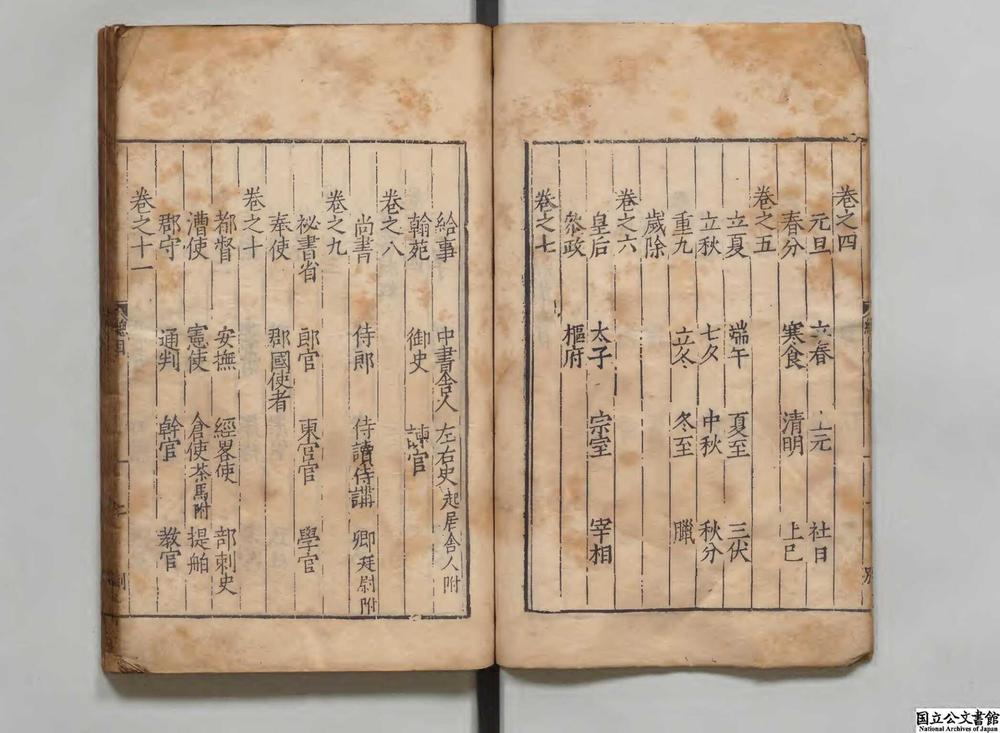 卷之四
元旦 立春 上元 社日
春分 寒食 清明 上巳
卷之五
立夏 端午 夏至 三伏
立秋 七夕 中秋 秋分
重九 立冬 冬至 臘
歲除
卷之六
皇后 太子 宗室 宰相
叅政 樞府
卷之七
給事 中書舎人 左右史起居舎人附
翰苑 御史 諫官
卷之八
尚書 侍郎 侍讀侍講 卿廷尉附
卷之九
祕書省 郎官 東宫官 學官
奉使 郡國使者
卷之十
都督 安撫 經畧使 部刺史
漕使 憲使 倉使茶馬附 提舶
郡守 通判 幹官 教官
卷之十一
總目
国立公文書館
National Archives of Japan